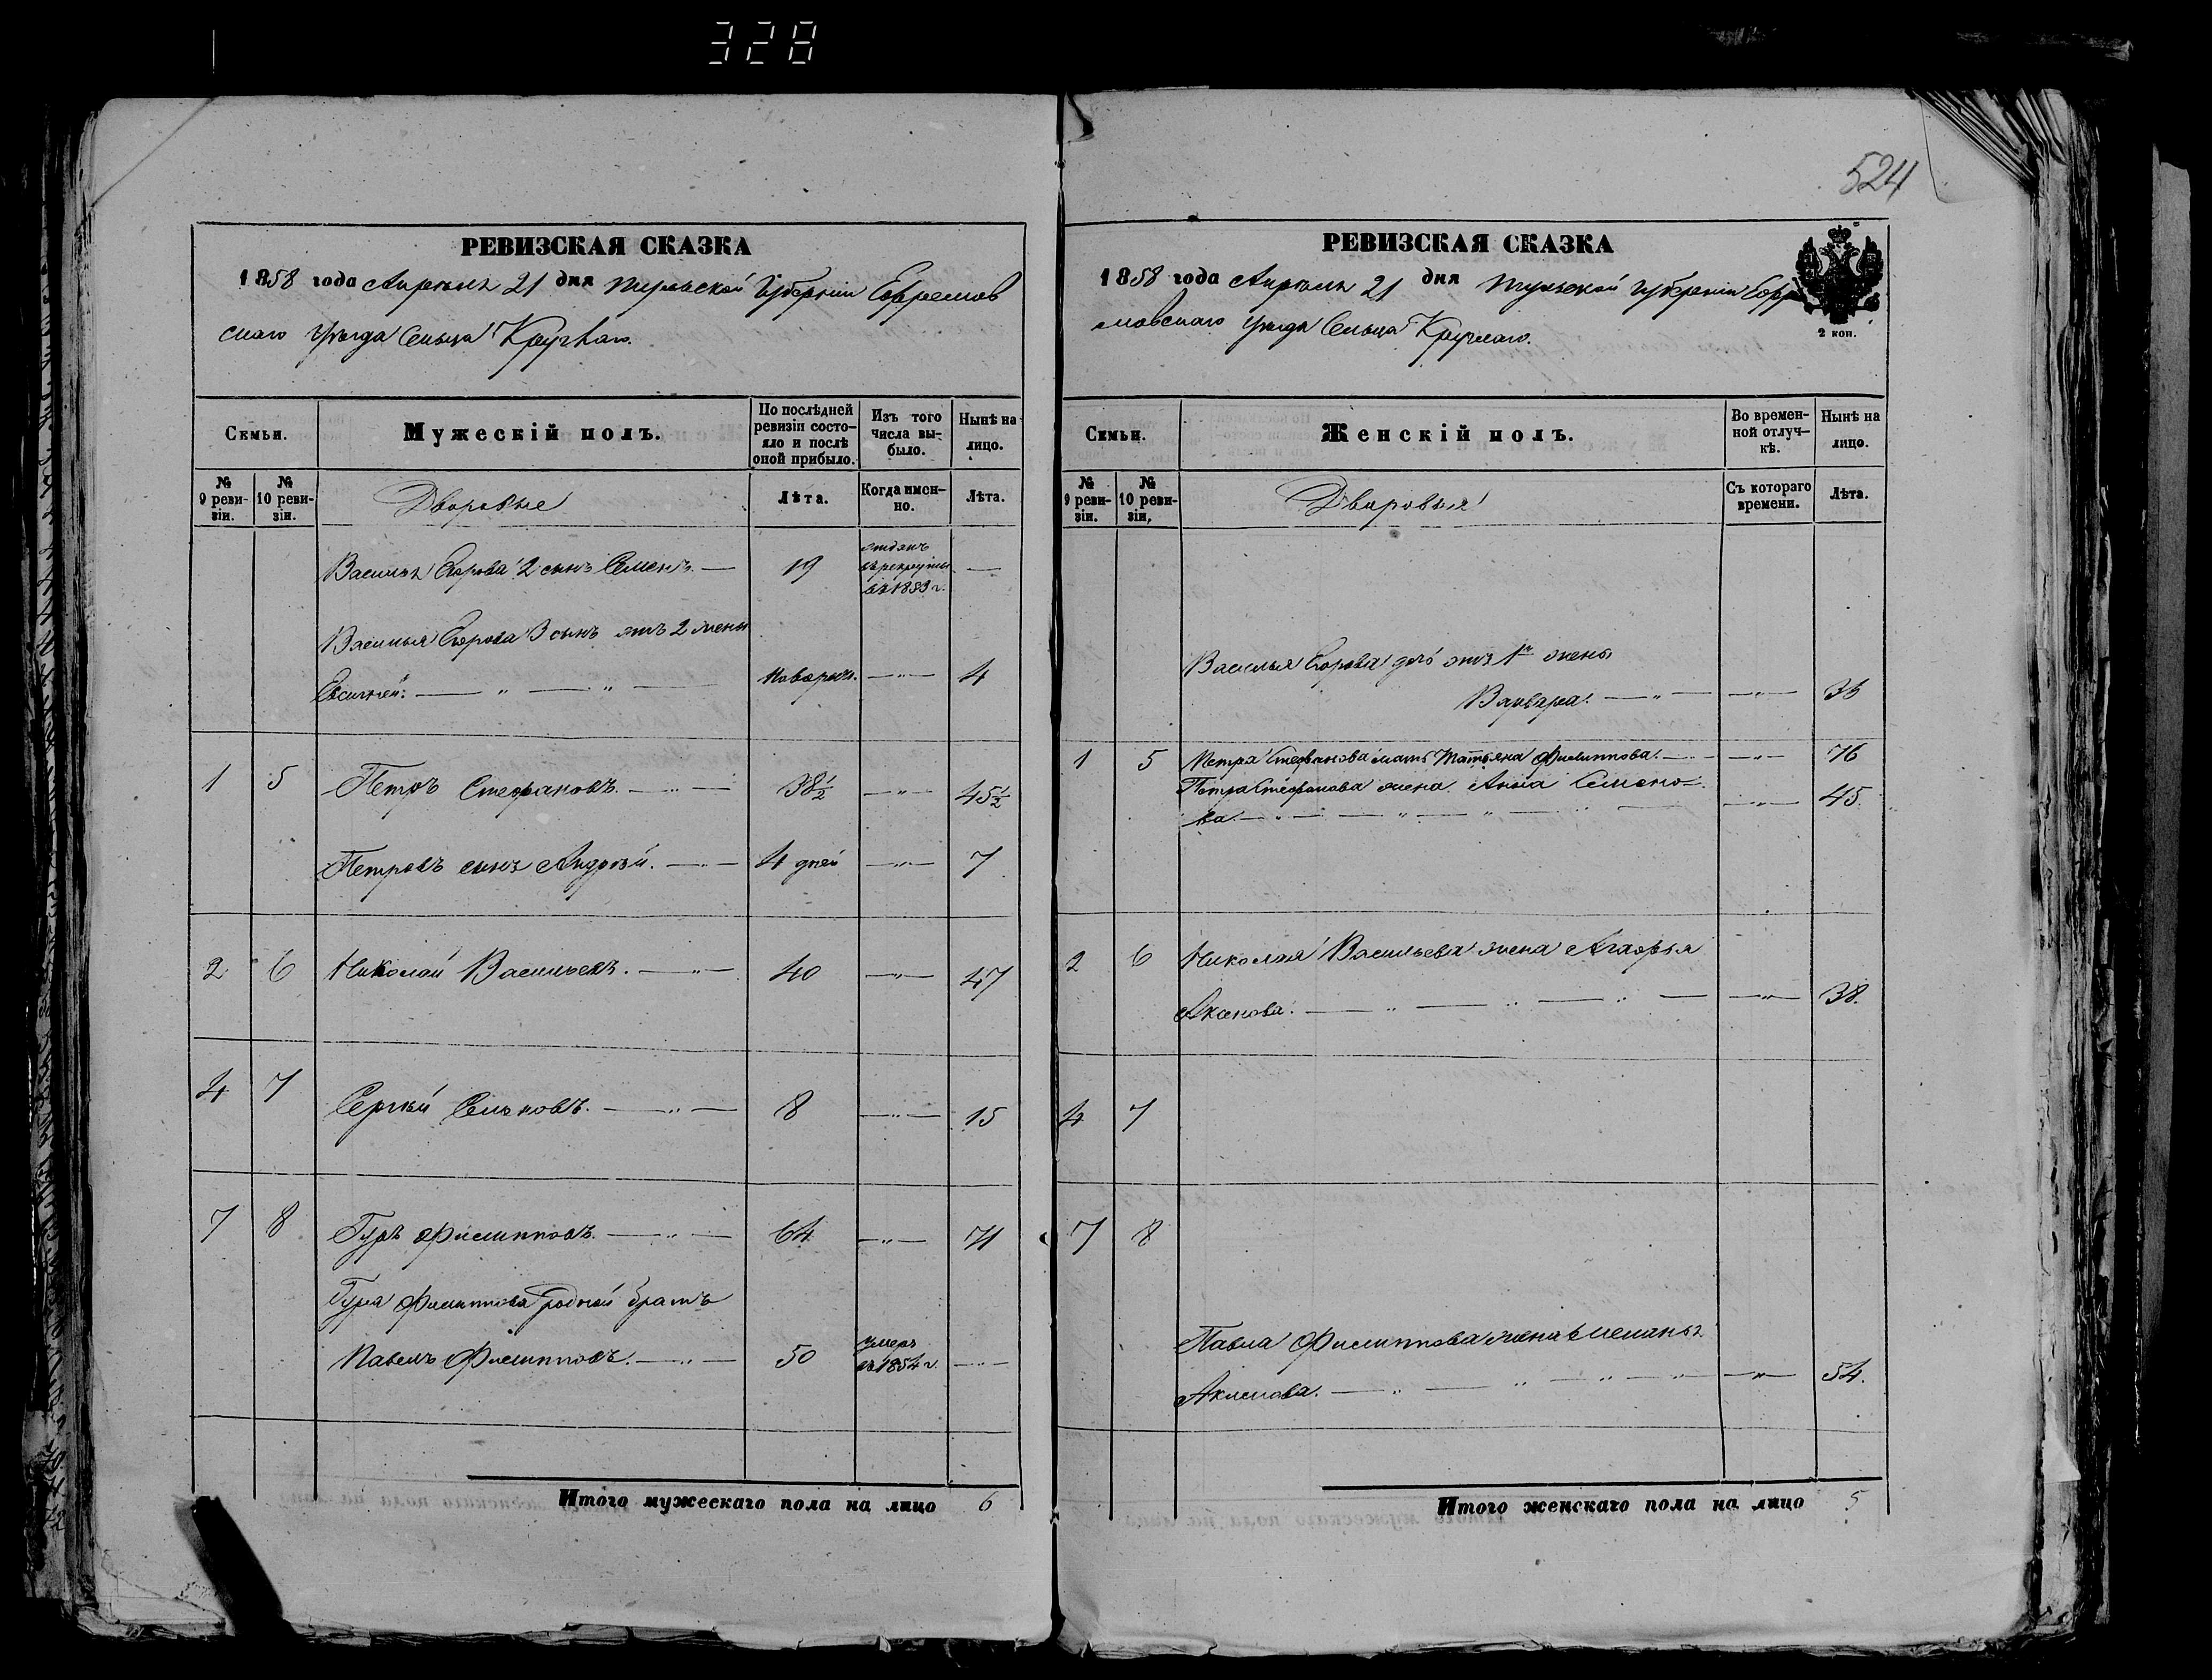 328
524
РЕВИЗСКАЯ СКАЗКА
1858 года Апрѣля 21 дня Тульской Губерніи Ефремов
скаго уѣзда Сельца Круглаго.
Семьи.
Мужескій полъ.
По послѣдней ревизіи состояло и послѣ оной прибыло.
Изъ того числа выбыло.
Ныне на лицо.
№ 9 ревизіи.
№ 10 ревизіи.
Дворовые
Лѣта.
Когда именно.
Лѣта.
Василья Егорова 2 сынъ Семенъ. — 19 отданъ въ рекруты въ 1853 г. —
Василья Егорова 3 сынъ отъ 2 жены
— " — " — новорож. — " — 4
1 5 Петръ Стефановъ. — " — 38½ — " — 45½
Петровъ сынъ Андрей. — " — 4 дней — " — 7
2 6 Николай Васильевъ. — " — 40 — " — 47
4 7 Сергѣй Семеновъ. — " — 8 — " — 15
7 8 Гуръ Филипповъ. — " — 64 — " — 71
Гура Филиппова родной братъ
Павелъ Филипповъ. — " — 50 умеръ въ 1854 г. — " —
Итого мужескаго пола на лицо 6
РЕВИЗСКАЯ СКАЗКА
1858 года Апрѣля 21 дня Тульской Губерніи Ефре
мовскаго уѣзда Сельца Круглаго.
2 коп.
Семьи.
Женскій полъ.
Во временной отлучкѣ.
Нынѣ на лицо.
№ 9 ревизіи.
№ 10 ревизіи,
Дворовыя
Съ котораго времени.
Лѣта.
Василья Егорова дочь отъ 1й жены
Варвара. — " — — " — 36
1 5 Петра Стефанова мать Татьяна Филиппова. — " — — " — 76
Петра Стефанова жена Анна Семено-
ва. — " — " — " — — " — 45.
2 6 Николая Васильева жена Агафья
— " — " — — " — 38.
4 7
7 8
Павла Филиппова жена
Акимова. — " — " — " — " — — " — 54.
Итого женскаго пола на лицо 5